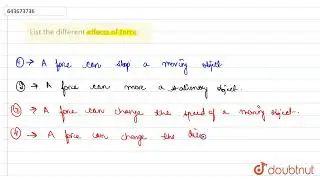 643673736
List the different effects of force.
① → A force can stop a moving object.
② → A force can move a stationary object.
③ → A force can change the speed of a moving object.
④ → A force can change the dire
doubtnut